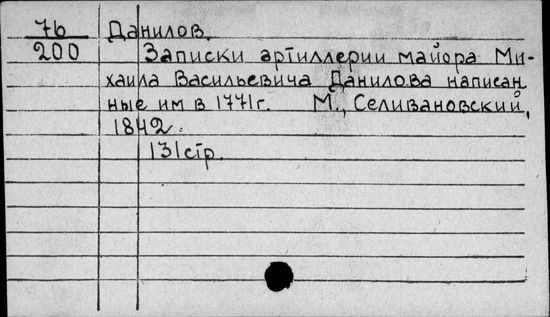 76 Данилов.
200 Записки артиллерии майора Ми-
хаила Васильевича Данилова написан
ные им в 1771г. М., Селивановский,
1842.
131стр.